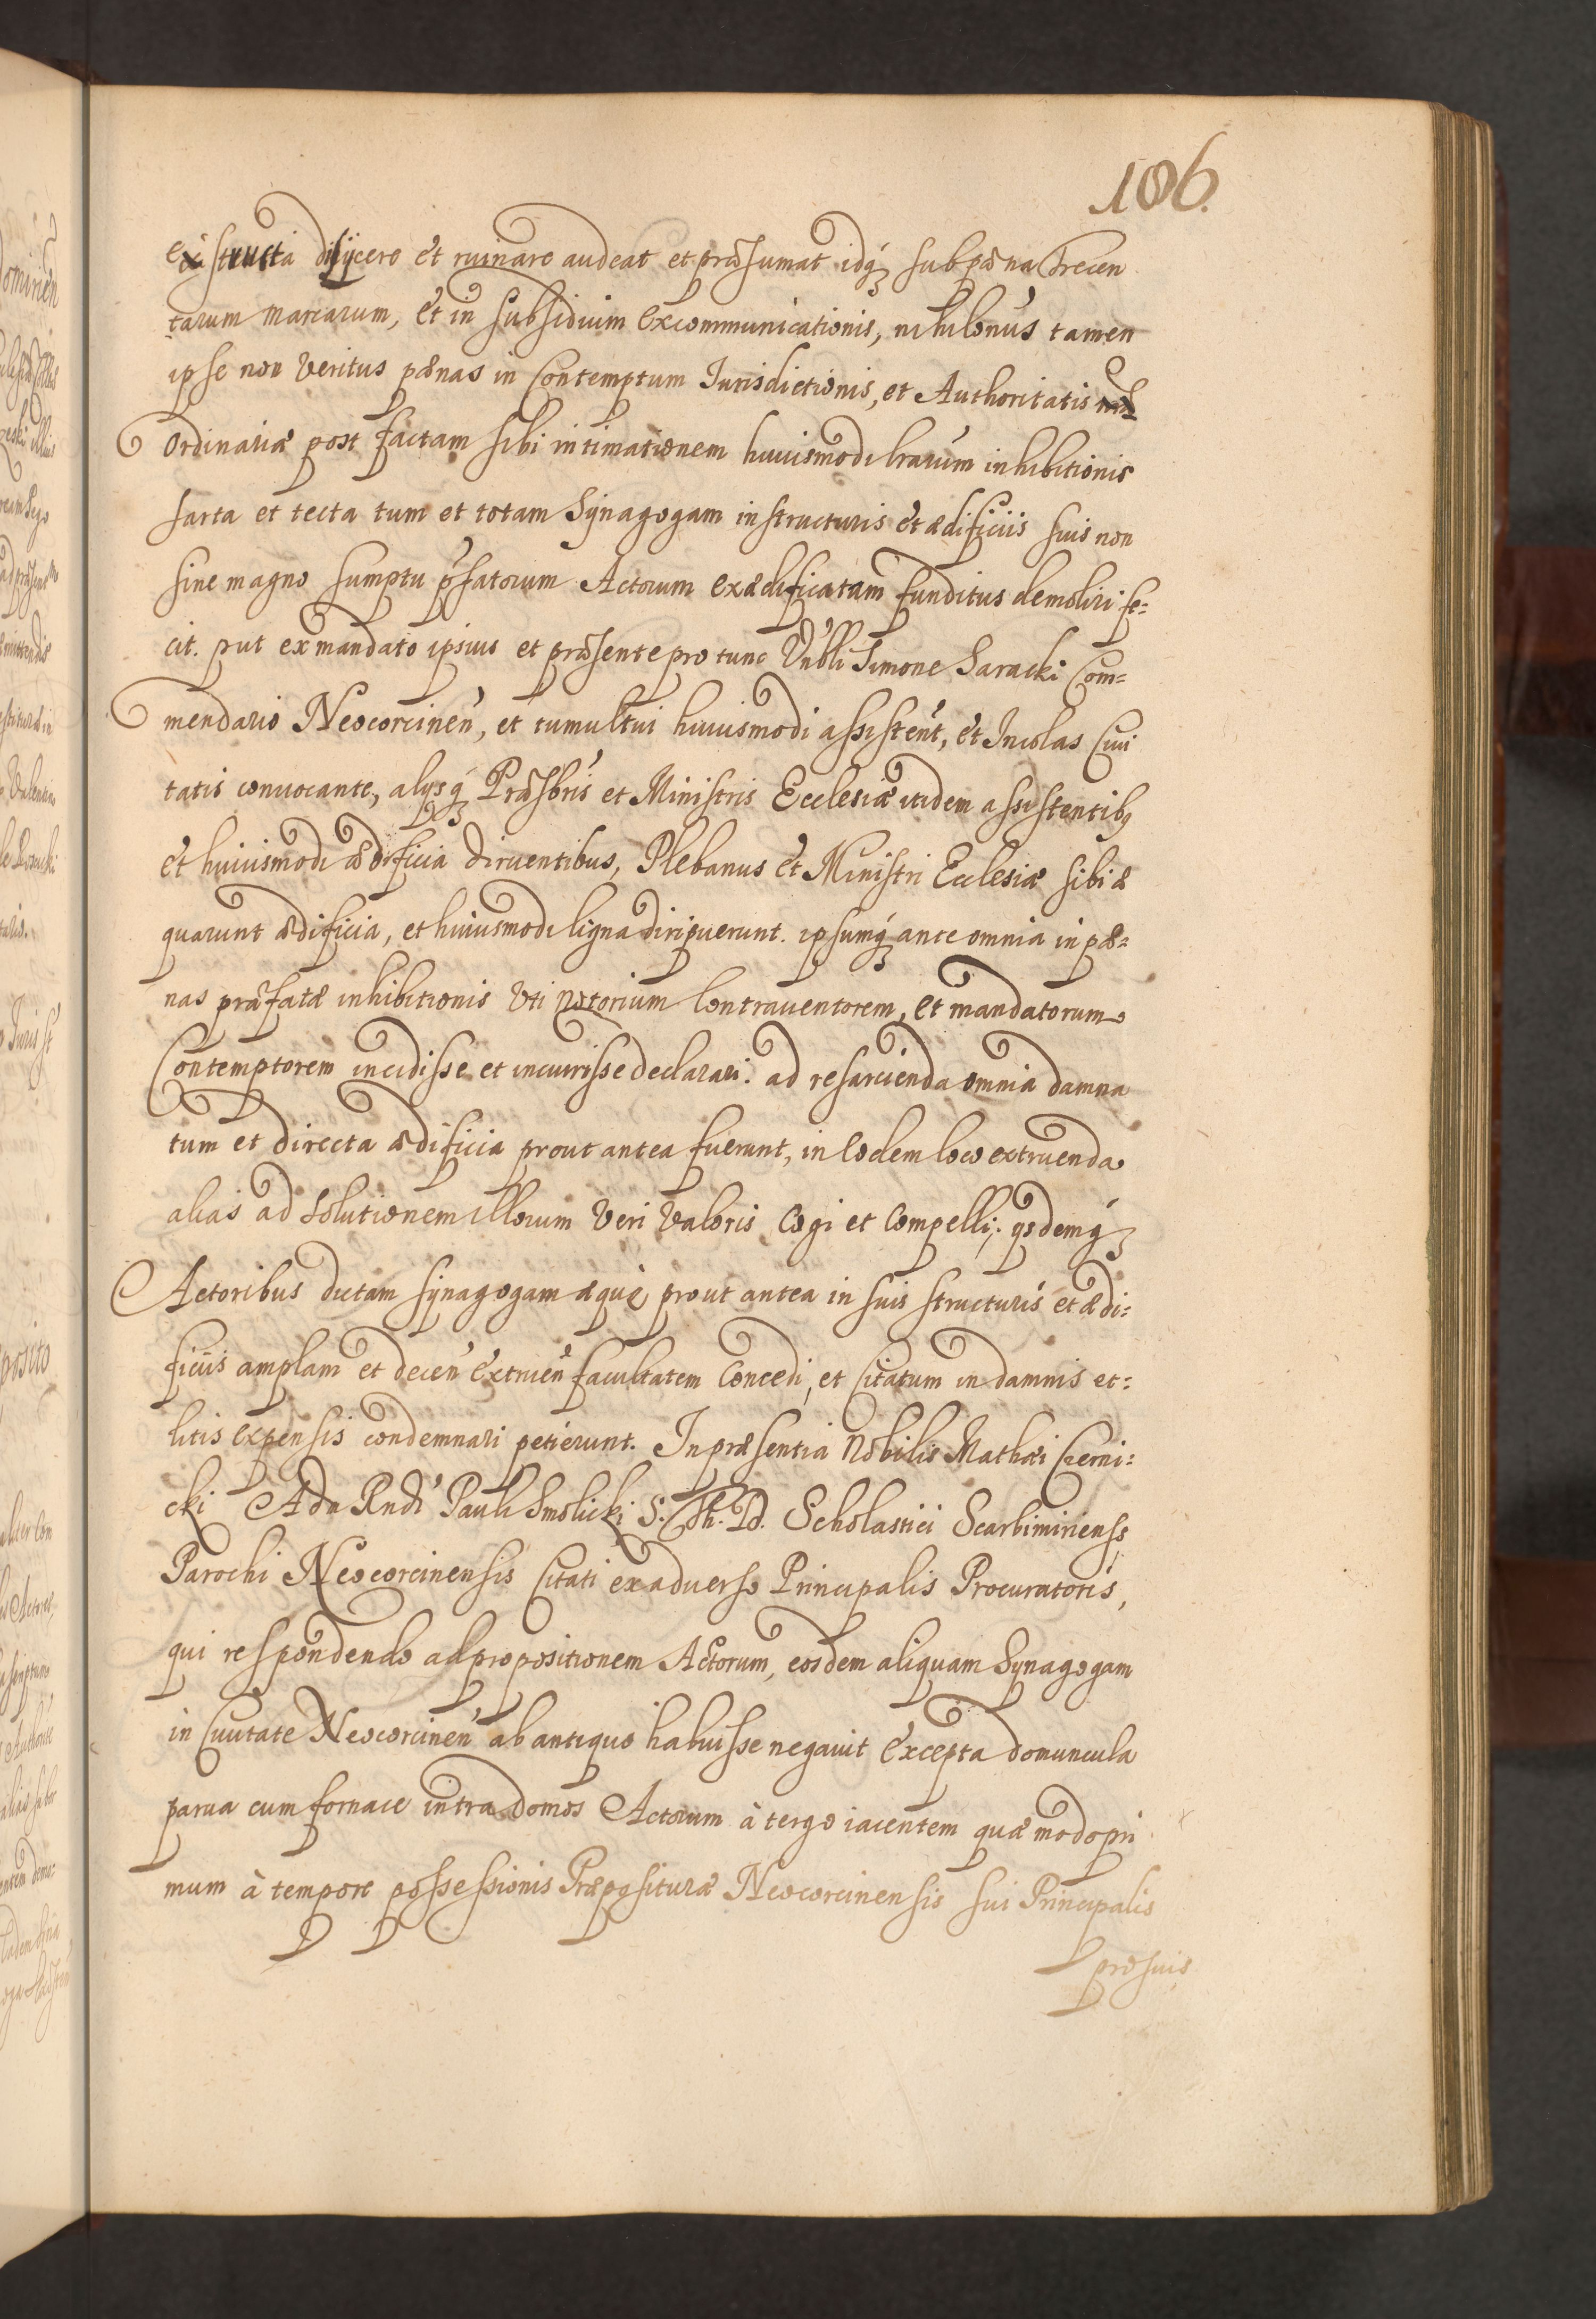 106.
exstructa disijcere et ruinare audeat et præsumat idq́ sub pœna Trecen
tarum Marcarum, et in subsidium excommunicationis, nihilonus tamen
ipse non veritus pœnas in Contemptum Iurisdictionis, et Authoritatis
Ordinariæ post factam sibi intimationem huiusmodi lrarum inhibitionis
sarta et tecta tum et totam Synagogam in structuris et ædificiis suis non
sine magno sumptu ṕfatorum Actorum exædificatam funditus demoliri fe=
cit. put ex mandato ipsius et præsente pro tunc Vnbli Simone Saracki Com=
mendario Neocorcinen, et tumultui huiusmodi assistent, et Incolas Ciui
tatis conuocante, alijsq́ Præsbris et Ministris Ecclesiæ itidem assistentibq
et huiusmodi ædificia diruentibus, Plebanus et Ministri Ecclesiæ sibi æ
quarunt ædificia, et huiusmodi ligna diripuerunt. ipsumq́ ante omnia in pœ=
nas præfatæ inhibitionis vti notorium Contrauentorem, et mandatorum
Contemptorem incidisse et incurrisse declarari. ad resarcienda omnia damna
tum et directa ædificia prout antea fuerunt, in eodem loco extruenda
alias ad solutionem illorum veri valoris Cogi et Compelli; ijsdemq́
Actoribus dictam synagogam æque prout antea in suis structuris et ædi=
ficiis amplam et decen extruen facultatem Concedi, et Citatum in damnis et=
litis expensis condemnari petierunt. In præsentia Nobilis Mathæi Czerni=
cki Adn Rndi Pauli Smolicki S. Th. D. Scholastici Scarbimirienss
Parochi Neocorcinensis Citati ex aduerso Principalis Procuratoris,
qui respondendo ad propositionem Actorum, eosdem aliquam Synagogam
in Ciuitate Neocorcinen ab antiquo habuisse negauit excepta domuncula
parua cum fornace intra domos Actorum à tergo iacentem quæ modo pri
mum à tempore possessionis Præposituræ Neocorcinensis sui Principalis
pro suis